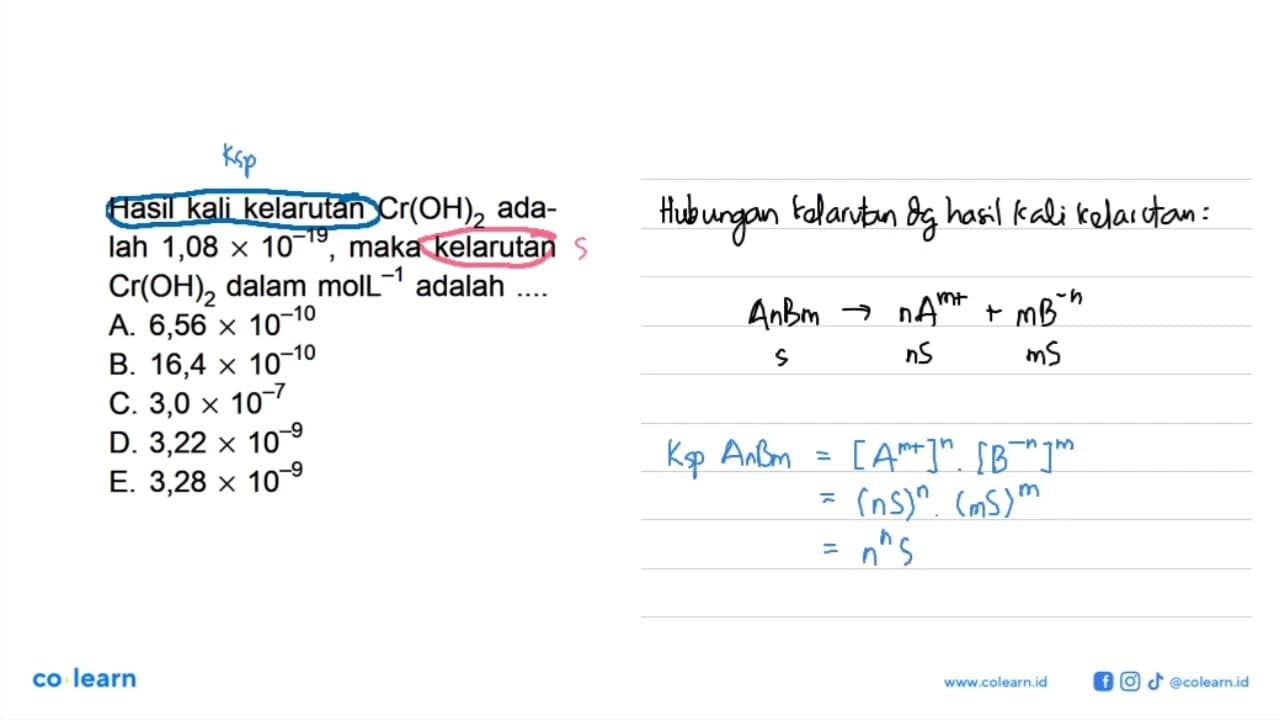 Ksp
Hasil kali kelarutan Cr(OH)₂ ada-
lah 1,08 × 10⁻¹⁹, maka kelarutan S
Cr(OH)₂ dalam molL⁻¹ adalah ....
A. 6,56 × 10⁻¹⁰
B. 16,4 × 10⁻¹⁰
C. 3,0 × 10⁻⁷
D. 3,22 × 10⁻⁹
E. 3,28 × 10⁻⁹
Hubungan kelarutan dg hasil kali kelarutan :
AnBm → nAᵐ⁺ + mB⁻ⁿ
s nS mS
Ksp AnBm = [Aᵐ⁺]ⁿ . [B⁻ⁿ]ᵐ
= (nS)ⁿ . (mS)ᵐ
= nⁿ S
co learn
www.colearn.id
@colearn.id